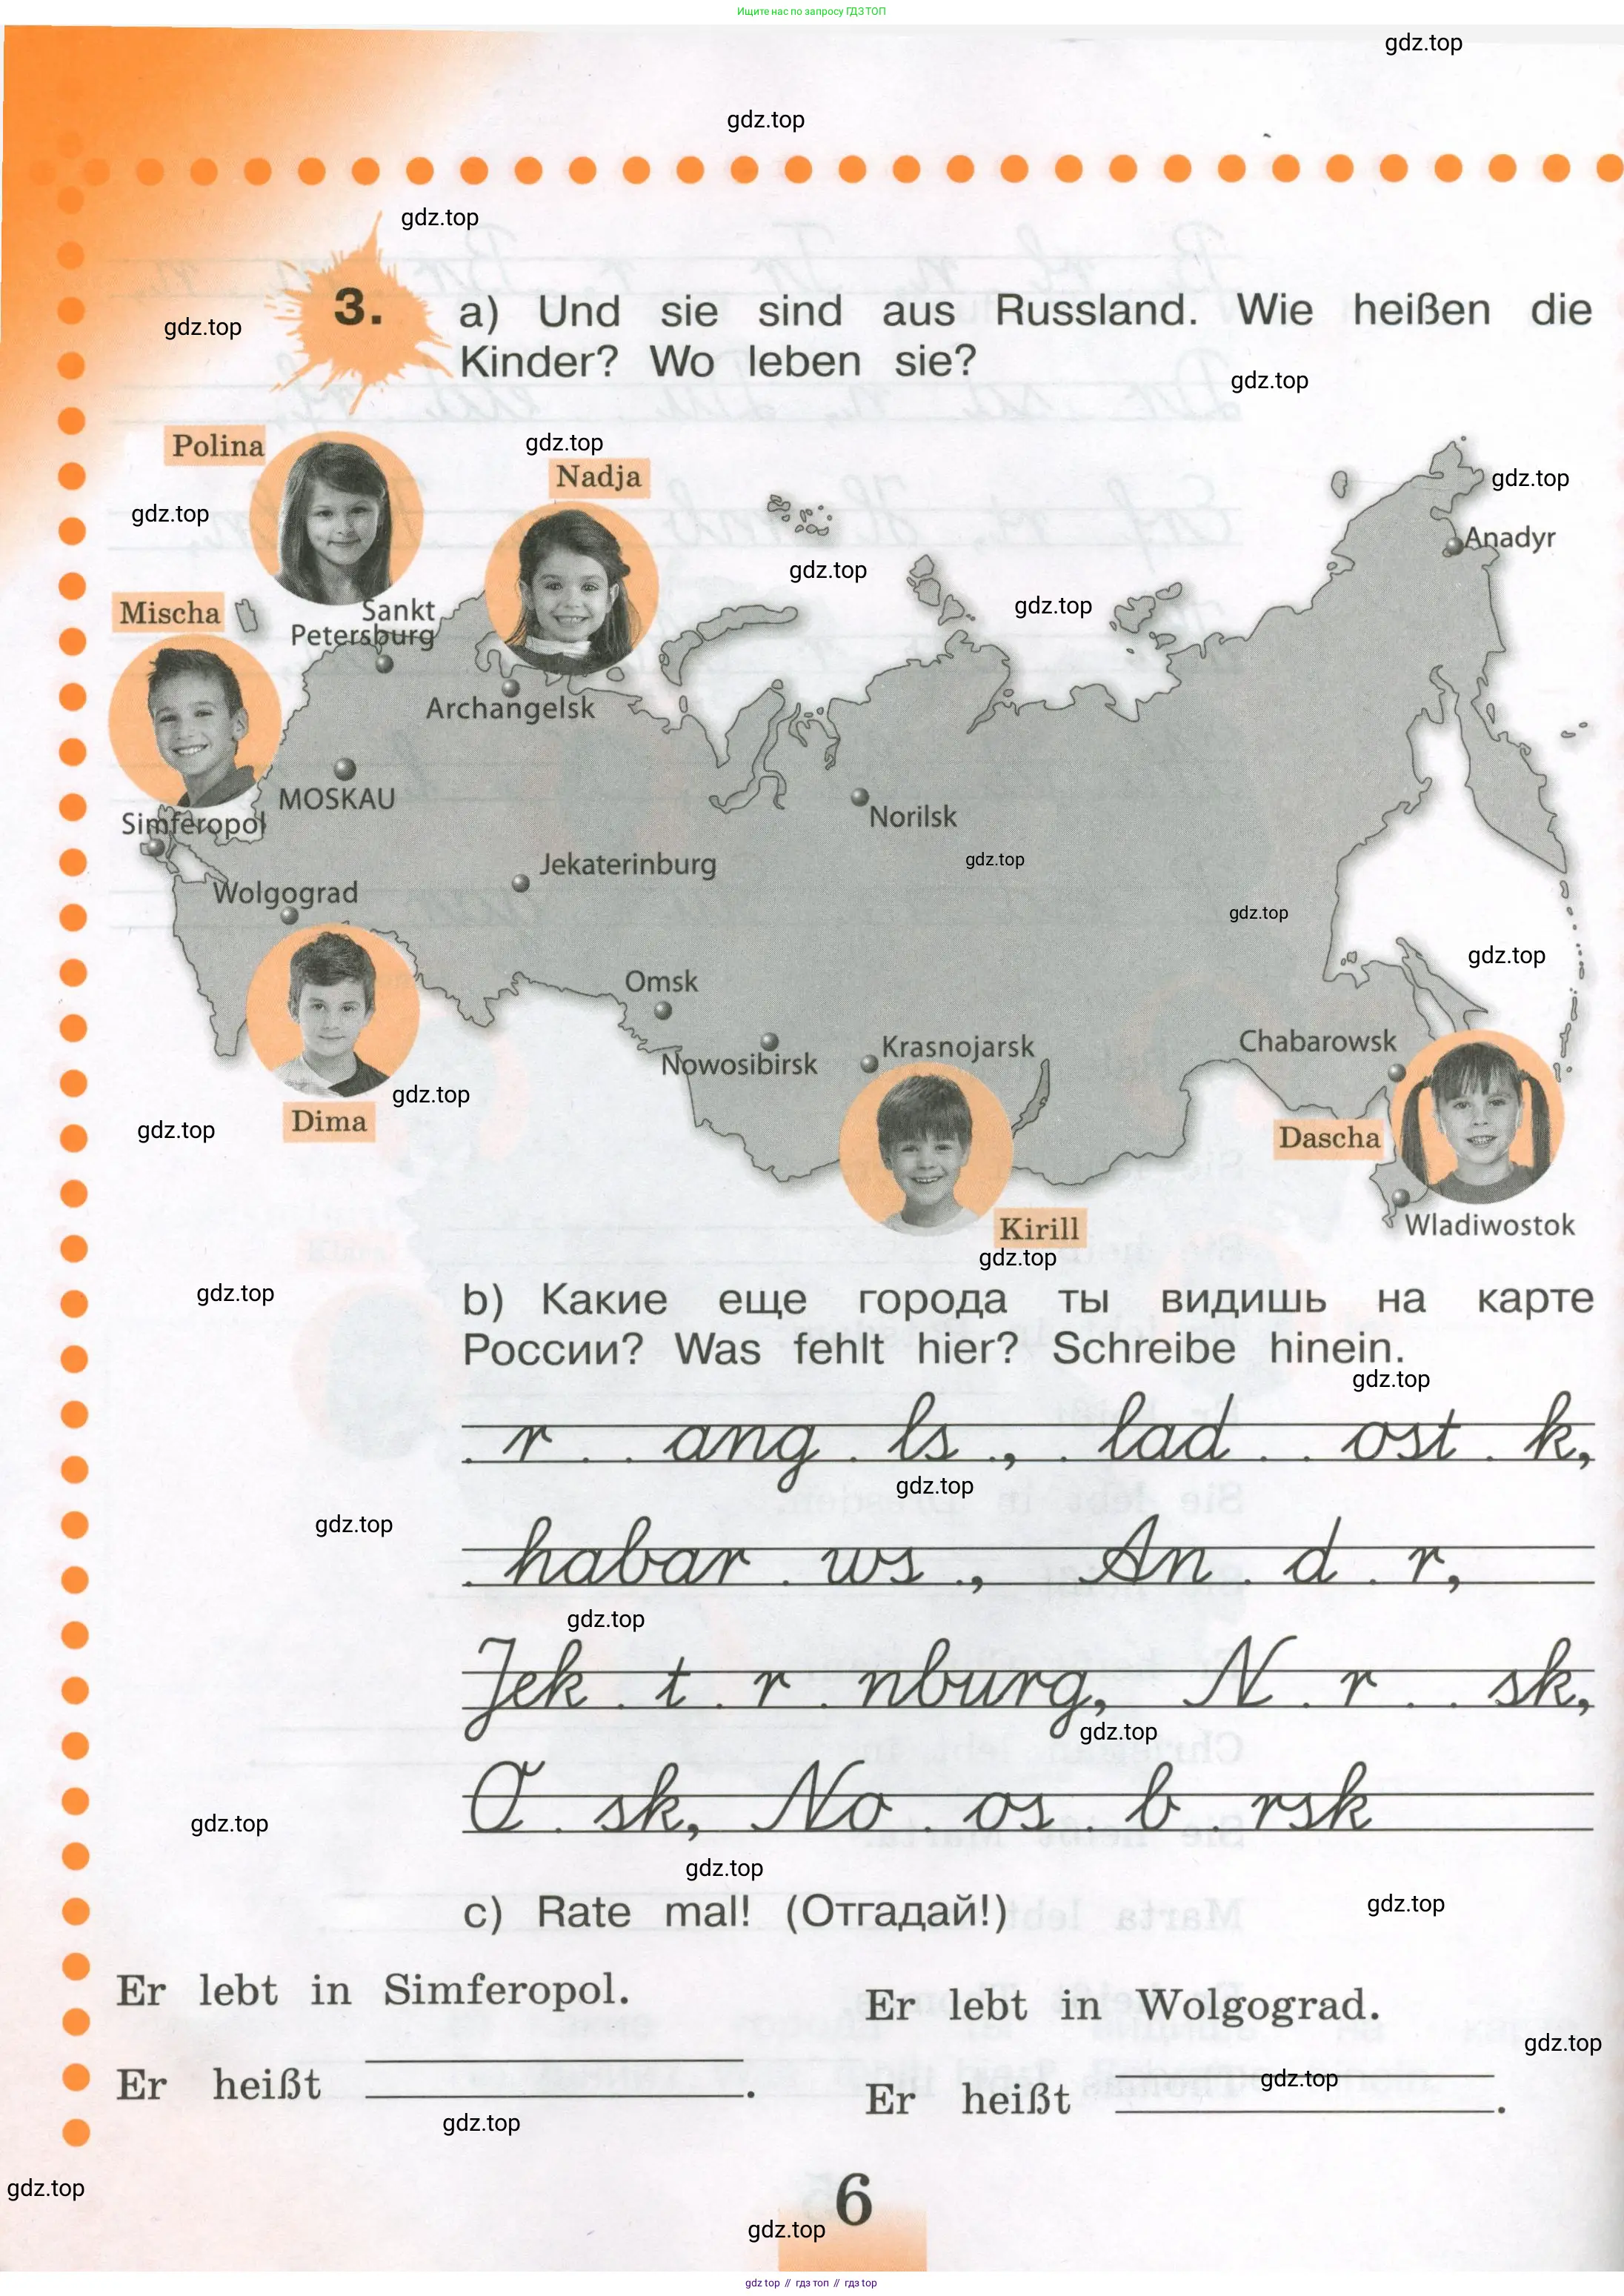 Ищите нас по запросу ГДЗ ТОП
gdz.top
gdz.top
gdz.top
3. a) Und sie sind aus Russland. Wie heißen die
gdz.top
Kinder? Wo leben sie?
gdz.top
Polina
gdz.top
Nadja
gdz.top
gdz.top
Anadyr
gdz.top
gdz.top
Mischa
Sankt
Petersburg
Archangelsk
MOSKAU
Norilsk
Simferopol
gdz.top
Jekaterinburg
Wolgograd
gdz.top
gdz.top
Omsk
Nowosibirsk
Krasnojarsk
Chabarowsk
gdz.top
Dima
gdz.top
Dascha
Kirill
Wladiwostok
gdz.top
gdz.top
b) Какие еще города ты видишь на карте
России? Was fehlt hier? Schreibe hinein.
gdz.top
. r . . ang . ls ., . lad . . ost . k,
gdz.top
gdz.top
. habar . ws ., An . d . r,
gdz.top
Jek . t . r . nburg, N . r . . sk,
gdz.top
O . sk, No . os . b . rsk
gdz.top
gdz.top
c) Rate mal! (Отгадай!)
gdz.top
Er lebt in Simferopol.
Er lebt in Wolgograd.
gdz.top
Er heißt .
gdz.top
Er heißt .
gdz.top
gdz.top
6
gdz.top
gdz top // гдз топ // gdz top